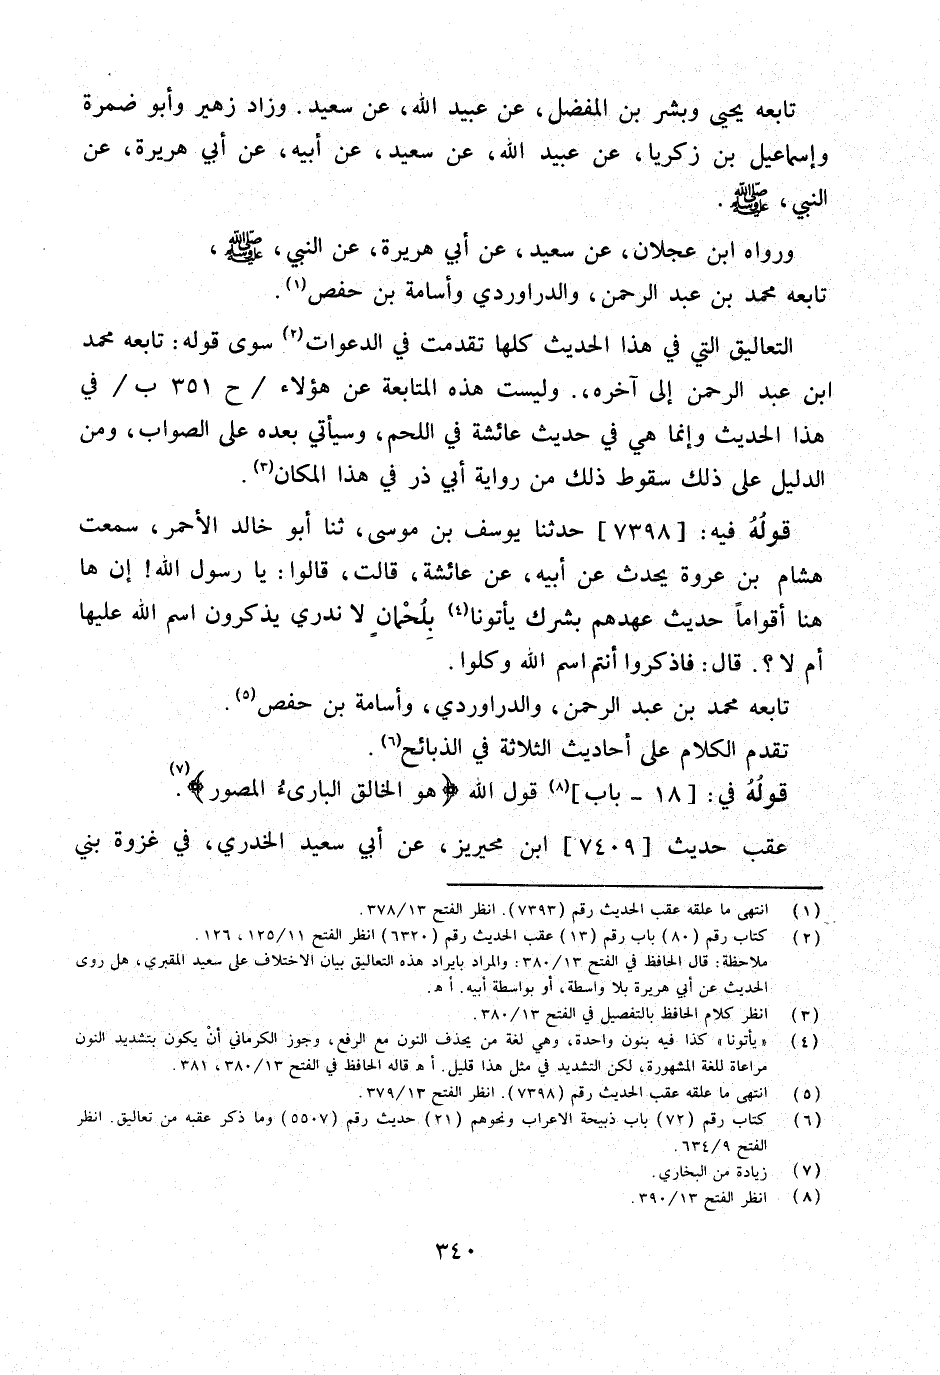 تابعه يحيى وبشر بن المفضل، عن عبيد الله، عن سعيد. وزاد زهير وأبو ضمرة
وإسماعيل بن زكريا، عن عبيد الله، عن سعيد، عن أبيه، عن أبي هريرة، عن
النبي، ﷺ.
ورواه ابن عجلان، عن سعيد، عن أبي هريرة، عن النبي، ﷺ،
تابعه محمد بن عبد الرحمن، والدراوردي وأسامة بن حفص(١).
التعاليق التي في هذا الحديث كلها تقدمت في الدعوات(٢) سوى قوله: تابعه محمد
ابن عبد الرحمن إلى آخره،. وليست هذه المتابعة عن هؤلاء / ح ٣٥١ ب/ في
هذا الحديث وإنما هي في حديث عائشة في اللحم، وسيأتي بعده على الصواب، ومن
الدليل على ذلك سقوط ذلك من رواية أبي ذر في هذا المكان(٣).
قولُهُ فيه: [٧٣٩٨] حدثنا يوسف بن موسى، ثنا أبو خالد الأحمر، سمعت
هشام بن عروة يحدث عن أبيه، عن عائشة، قالت، قالوا: يا رسول الله! إن ها
هنا أقواماً حديث عهدهم بشرك يأتونا(٤) بِلُحْمانٍ لا ندري يذكرون اسم الله عليها
أم لا؟. قال: فاذكروا أنتم اسم الله وكلوا.
تابعه محمد بن عبد الرحمن، والدراوردي، وأسامة بن حفص(٥).
تقدم الكلام على أحاديث الثلاثة في الذبائح(٦).
قولُهُ في: [١٨ - باب](٨) قول الله ﴿هو الخالق البارىءُ المصور﴾(٧).
عقب حديث [٧٤٠٩] ابن محيريز، عن أبي سعيد الخدري، في غزوة بني
(١) انتهى ما علقه عقب الحديث رقم (٧٣٩٣). انظر الفتح ٣٧٨/١٣.
(٢) كتاب رقم (٨٠) باب رقم (١٣) عقب الحديث رقم (٦٣٢٠) انظر الفتح ١٢٥/١١، ١٢٦.
ملاحظة: قال الحافظ في الفتح ٣٨٠/١٣: والمراد بايراد هذه التعاليق بيان الاختلاف على سعيد المقبري، هل روى
الحديث عن أبي هريرة بلا واسطة، أو بواسطة أبيه. أ هـ.
(٣) انظر كلام الحافظ بالتفصيل في الفتح ٣٨٠/١٣.
(٤) «يأتونا» كذا فيه بنون واحدة، وهي لغة من يحذف النون مع الرفع، وجوز الكرماني أنْ يكون بتشديد النون
مراعاة للغة المشهورة، لكن التشديد في مثل هذا قليل. أ هـ قاله الحافظ في الفتح ٣٨٠/١٣، ٣٨١.
(٥) انتهى ما علقه عقب الحديث رقم (٧٣٩٨). انظر الفتح ٣٧٩/١٣.
(٦) كتاب رقم (٧٢) باب ذبيحة الاعراب ونحوهم (٢١) حديث رقم (٥٥٠٧) وما ذكر عقبه من تعاليق. انظر
الفتح ٦٣٤/٩.
(٧) زيادة من البخاري.
(٨) انظر الفتح ٣٩٠/١٣.
٣٤٠